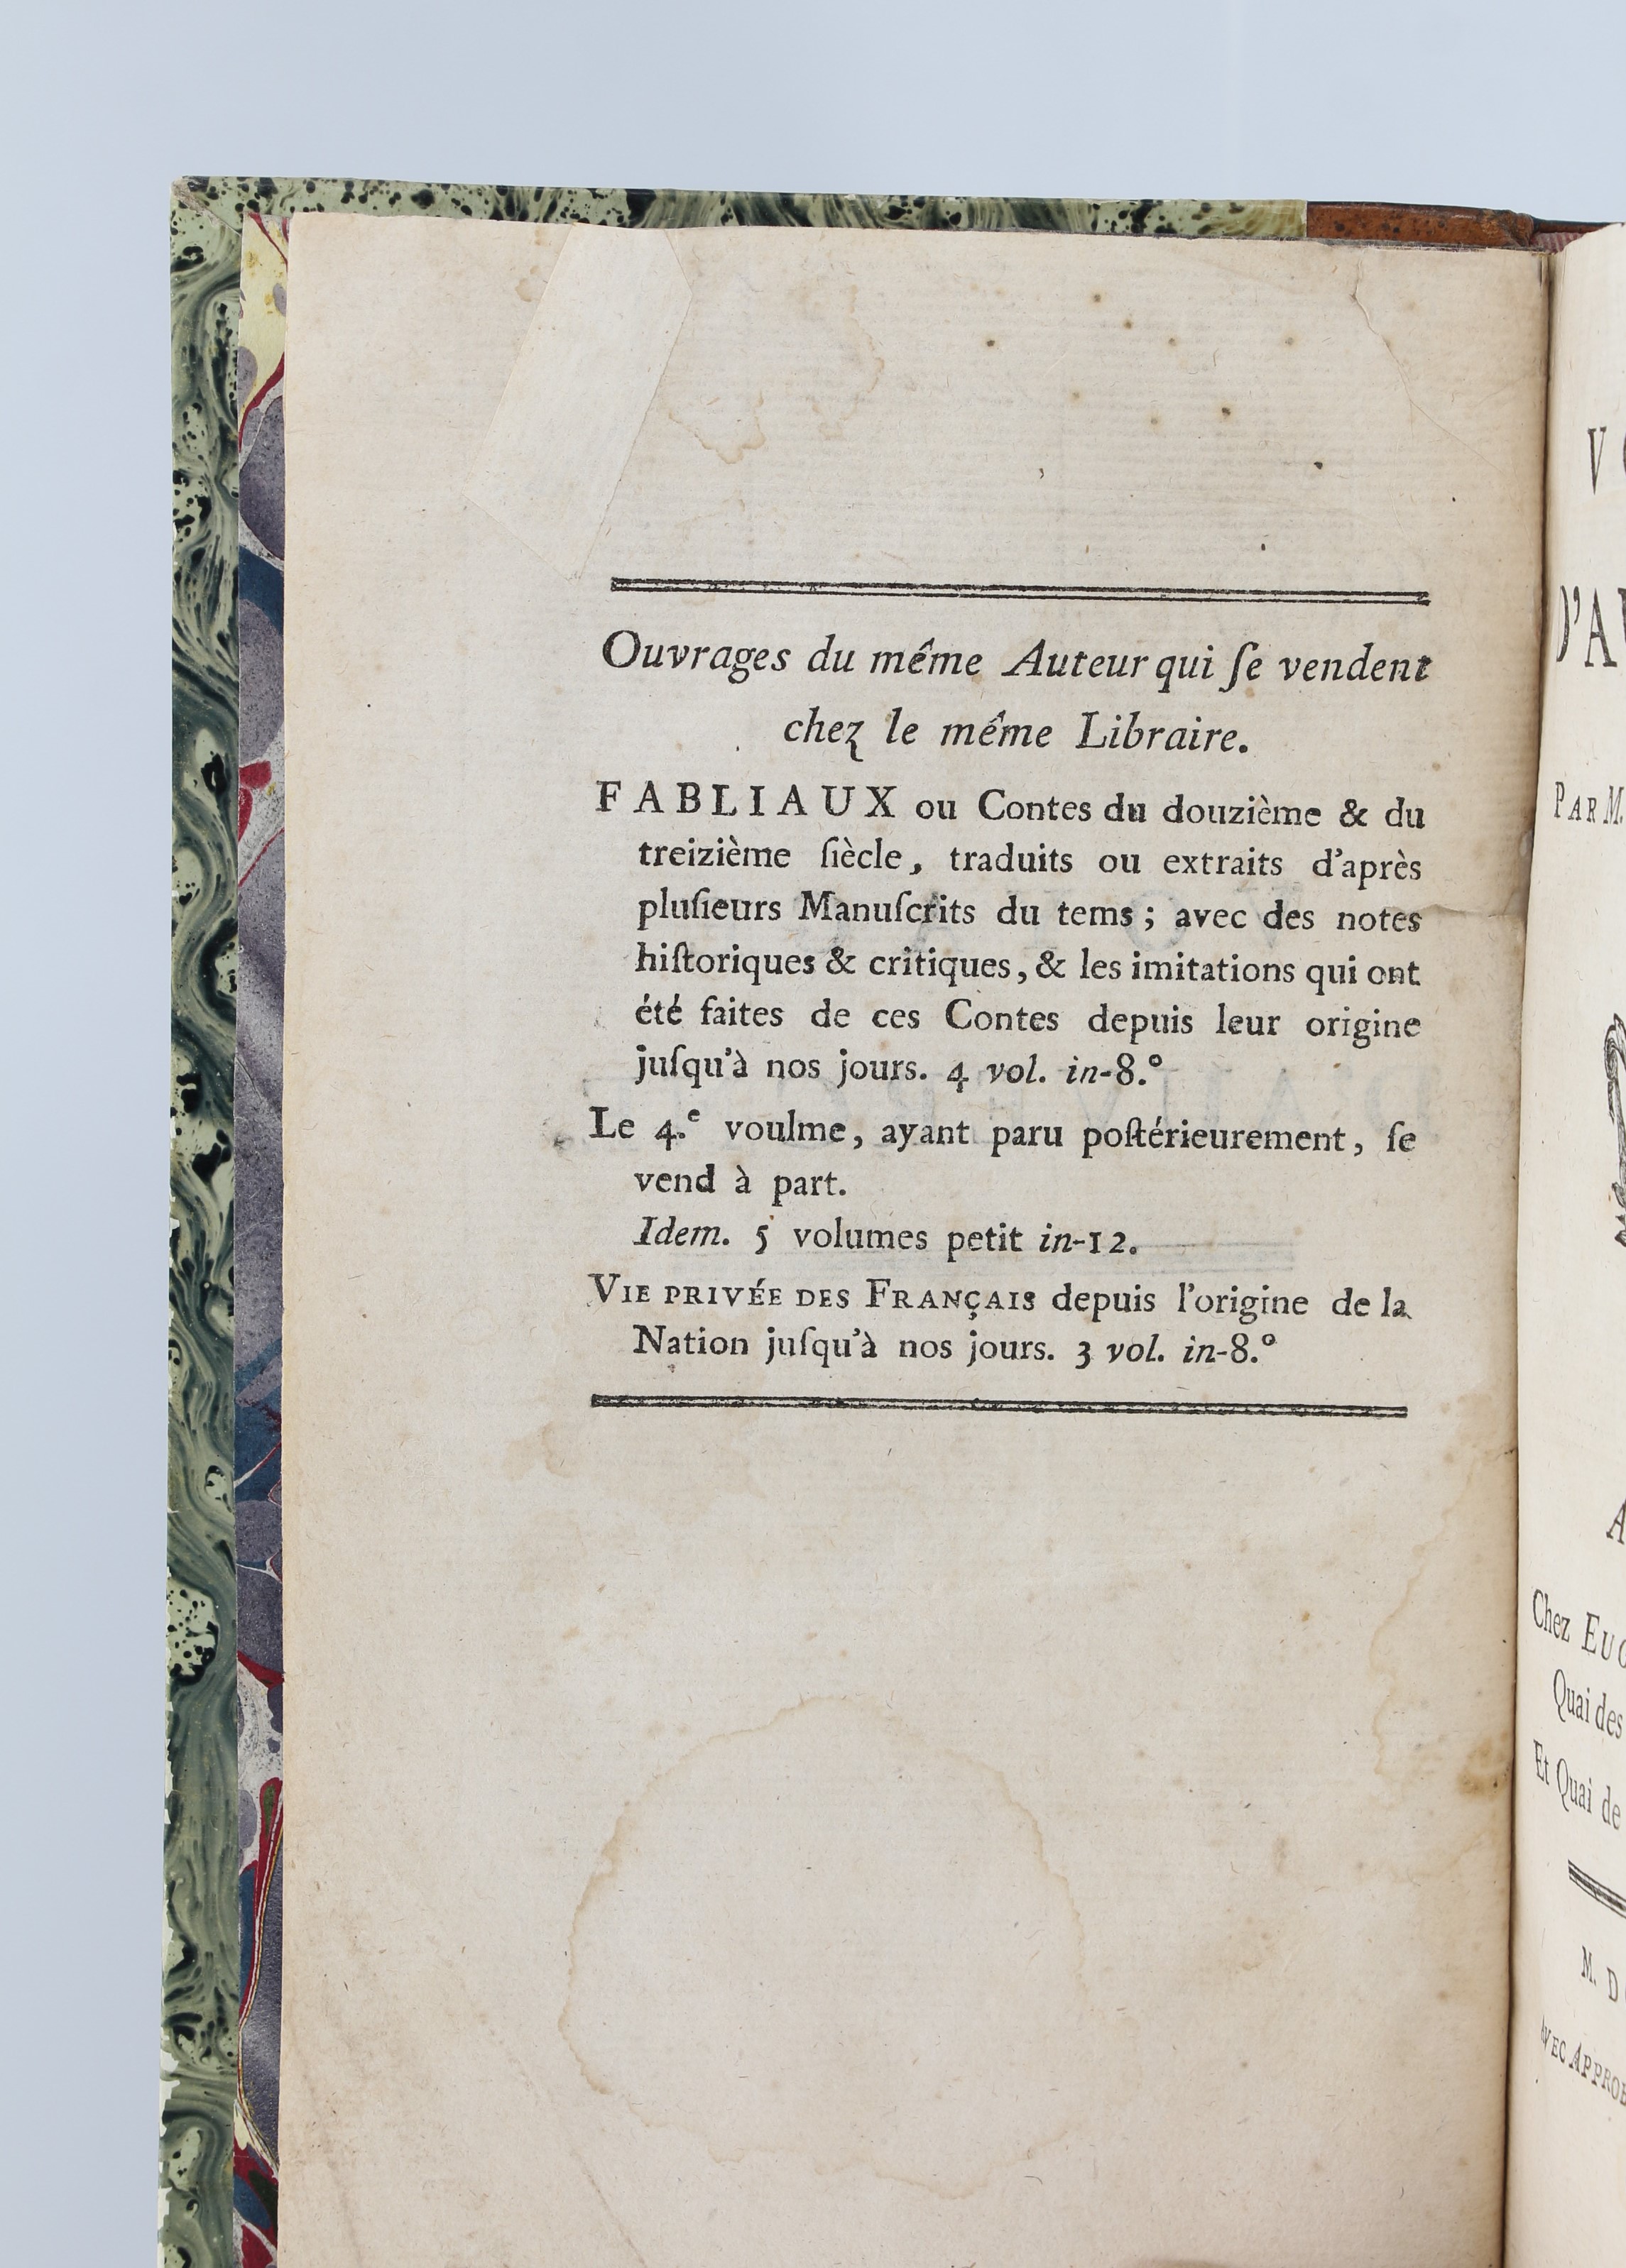 Ouvrages du même Auteur qui ſe vendent
chez le même Libraire.
FABLIAUX ou Contes du douzième & du
treizième ſiècle, traduits ou extraits d'après
pluſieurs Manuſcrits du tems; avec des notes
hiſtoriques & critiques, & les imitations qui ont
été faites de ces Contes depuis leur origine
juſqu'à nos jours. 4 vol. in-8.º
Le 4.e voulme, ayant paru poſtérieurement, ſe
vend à part.
Idem. 5 volumes petit in-12.
VIE PRIVÉE DES FRANÇAIS depuis l'origine de la
Nation juſqu'à nos jours. 3 vol. in-8.º
V
D'A
PAR M.
A
Chez
Quai des
Et Quai de
M. D
AVEC